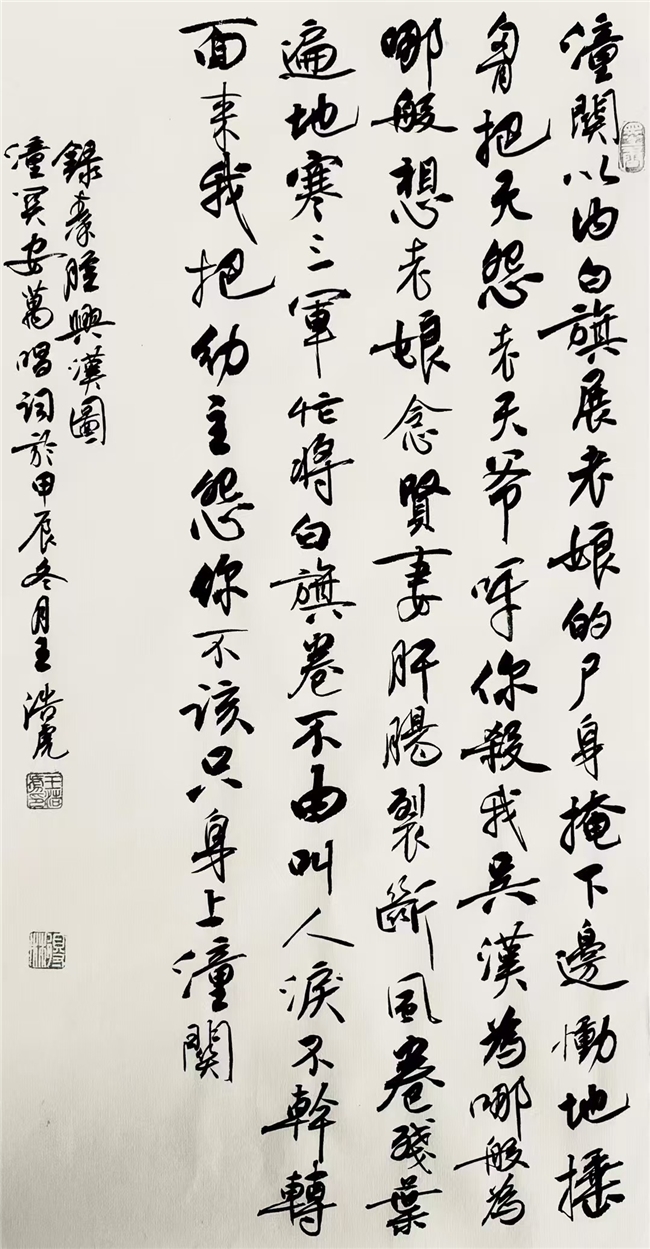 潼關以内白旗展老娘的尸身掩下邊慟地搥
胷把天怨老天爷呀你殺我吴漢為哪般為
哪般想老娘念賢妻肝腸裂斷風卷殘葉
遍地寒三軍忙將白旗卷不由叫人淚不幹轉
面来我把幼主怨你不該只身上潼關
錄秦腔興漢圖
潼関安萬唱詞於甲辰冬月王浩虎